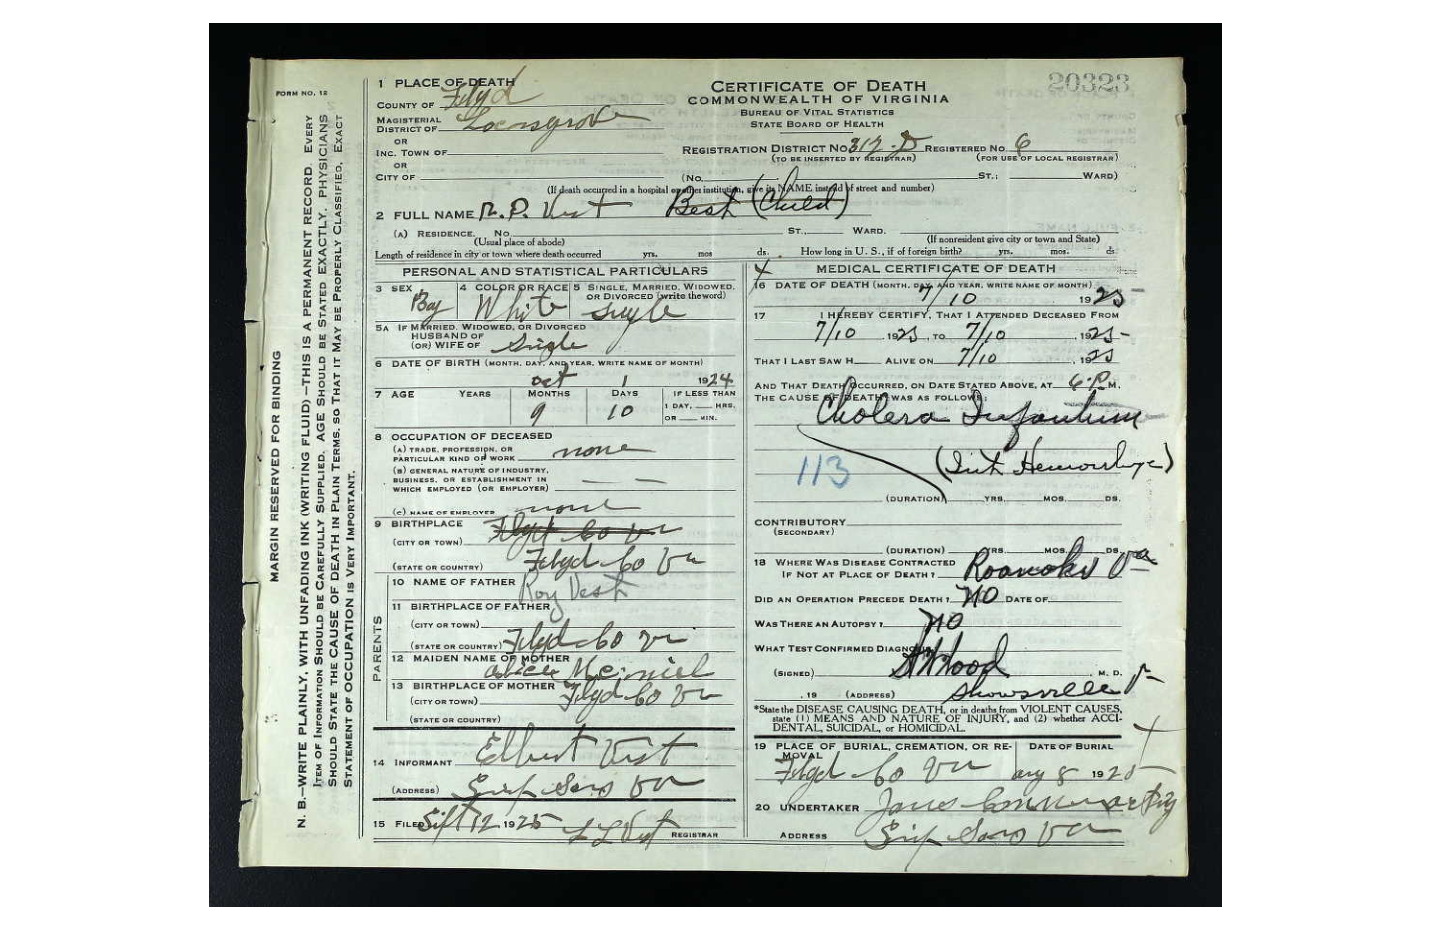 20323
FORM NO. 12
MARGIN RESERVED FOR BINDING
N. B.—WRITE PLAINLY, WITH UNFADING INK (WRITING FLUID).—THIS IS A PERMANENT RECORD. EVERY
ITEM OF INFORMATION SHOULD BE CAREFULLY SUPPLIED. AGE SHOULD BE STATED EXACTLY. PHYSICIANS
SHOULD STATE THE CAUSE OF DEATH IN PLAIN TERMS, SO THAT IT MAY BE PROPERLY CLASSIFIED. EXACT
STATEMENT OF OCCUPATION IS VERY IMPORTANT.
CERTIFICATE OF DEATH
COMMONWEALTH OF VIRGINIA
BUREAU OF VITAL STATISTICS
STATE BOARD OF HEALTH
1 PLACE OF DEATH
COUNTY OF Floyd
MAGISTERIAL
DISTRICT OF Locusgrove
OR
INC. TOWN OF
OR
CITY OF
REGISTRATION DISTRICT NO. 317-D REGISTERED NO. 6
(TO BE INSERTED BY REGISTRAR) (FOR USE OF LOCAL REGISTRAR)
(NO. ST.; WARD)
(If death occurred in a hospital or other institution, give its NAME instead of street and number)
2 FULL NAME R. P. Vest Best (Child)
(A) RESIDENCE. NO. ST., WARD.
(Usual place of abode) (If nonresident give city or town and State)
Length of residence in city or town where death occurred yrs. mos ds. How long in U. S., if of foreign birth? yrs. mos. ds.
PERSONAL AND STATISTICAL PARTICULARS
3 SEX 4 COLOR OR RACE 5 SINGLE, MARRIED, WIDOWED,
OR DIVORCED (write the word)
Boy White single
5A IF MARRIED, WIDOWED, OR DIVORCED
HUSBAND OF
(OR) WIFE OF single
6 DATE OF BIRTH (MONTH, DAY, AND YEAR, WRITE NAME OF MONTH)
Oct 1 1924
7 AGE YEARS MONTHS DAYS IF LESS THAN
9 10 1 DAY, HRS.
OR MIN.
8 OCCUPATION OF DECEASED
(A) TRADE, PROFESSION, OR
PARTICULAR KIND OF WORK none
(B) GENERAL NATURE OF INDUSTRY,
BUSINESS, OR ESTABLISHMENT IN
WHICH EMPLOYED (OR EMPLOYER) — —
(C) NAME OF EMPLOYER none
9 BIRTHPLACE Floyd Co Va
(CITY OR TOWN)
(STATE OR COUNTRY) Floyd Co Va
PARENTS
10 NAME OF FATHER Roy Vest
11 BIRTHPLACE OF FATHER
(CITY OR TOWN)
(STATE OR COUNTRY) Floyd Co Va
12 MAIDEN NAME OF MOTHER
13 BIRTHPLACE OF MOTHER Floyd Co Va
(CITY OR TOWN)
(STATE OR COUNTRY)
14 INFORMANT Elbert Vest
(ADDRESS) Va
15 FILED Sept 12 1925 L L Vest REGISTRAR
MEDICAL CERTIFICATE OF DEATH
16 DATE OF DEATH (MONTH, DAY, AND YEAR, WRITE NAME OF MONTH)
7/10 1925
17 I HEREBY CERTIFY, THAT I ATTENDED DECEASED FROM
7/10 1925, TO 7/10, 1925-
THAT I LAST SAW H ALIVE ON 7/10, 1925
AND THAT DEATH OCCURRED, ON DATE STATED ABOVE, AT 6-P M.
THE CAUSE OF DEATH WAS AS FOLLOWS:
Cholera Infantum
113 (Hemorrhage)
(DURATION) YRS. MOS. DS.
CONTRIBUTORY
(SECONDARY)
(DURATION) YRS. MOS. DS.
18 WHERE WAS DISEASE CONTRACTED
IF NOT AT PLACE OF DEATH? Roanoke Va
DID AN OPERATION PRECEDE DEATH? NO DATE OF
WAS THERE AN AUTOPSY? NO
WHAT TEST CONFIRMED DIAGNOSIS
(SIGNED) M. D.
, 19 (ADDRESS) Showsville Va
*State the DISEASE CAUSING DEATH, or in deaths from VIOLENT CAUSES,
state (1) MEANS AND NATURE OF INJURY, and (2) whether ACCI-
DENTAL, SUICIDAL, or HOMICIDAL.
19 PLACE OF BURIAL, CREMATION, OR RE- DATE OF BURIAL
MOVAL
Floyd Co Va 8 1925
20 UNDERTAKER
ADDRESS Va